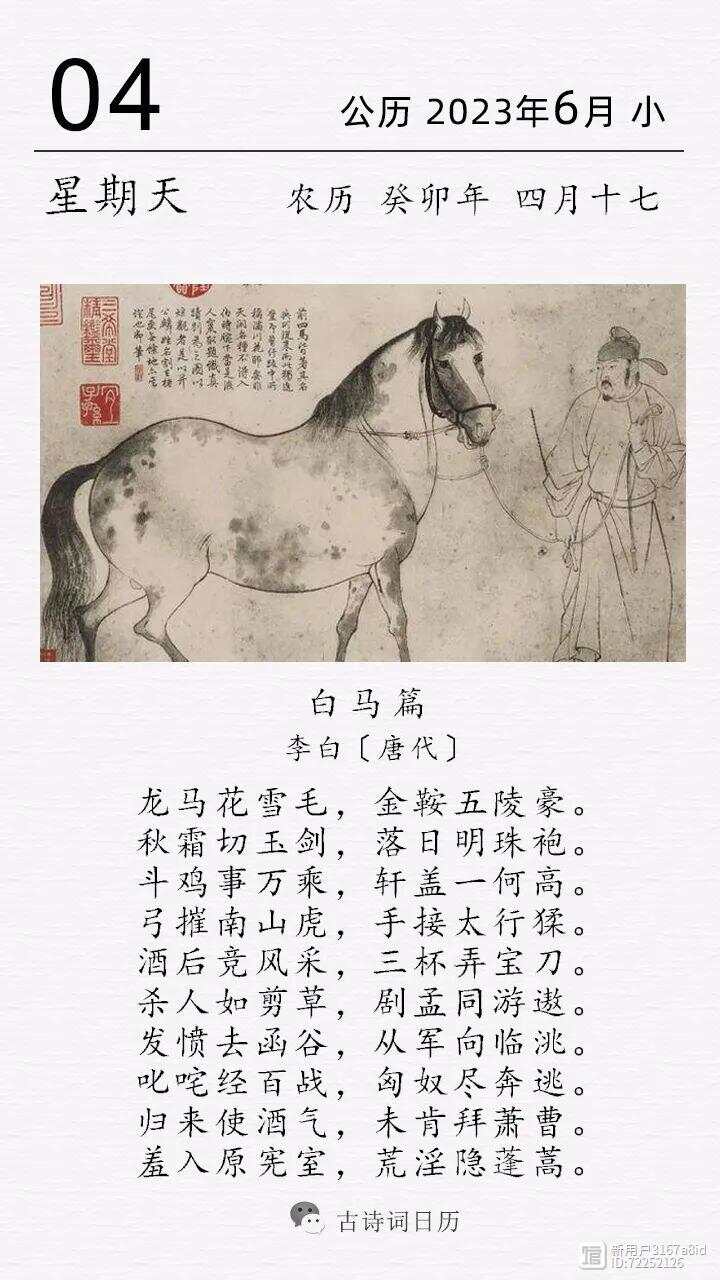 04
公历 2023年6月 小
星期天
农历 癸卯年 四月十七
白马篇
李白〔唐代〕
龙马花雪毛，金鞍五陵豪。
秋霜切玉剑，落日明珠袍。
斗鸡事万乘，轩盖一何高。
弓摧南山虎，手接太行猱。
酒后竞风采，三杯弄宝刀。
杀人如剪草，剧孟同游遨。
发愤去函谷，从军向临洮。
叱咤经百战，匈奴尽奔逃。
归来使酒气，未肯拜萧曹。
羞入原宪室，荒淫隐蓬蒿。
古诗词日历
新用户3167a8id
ID:72252126